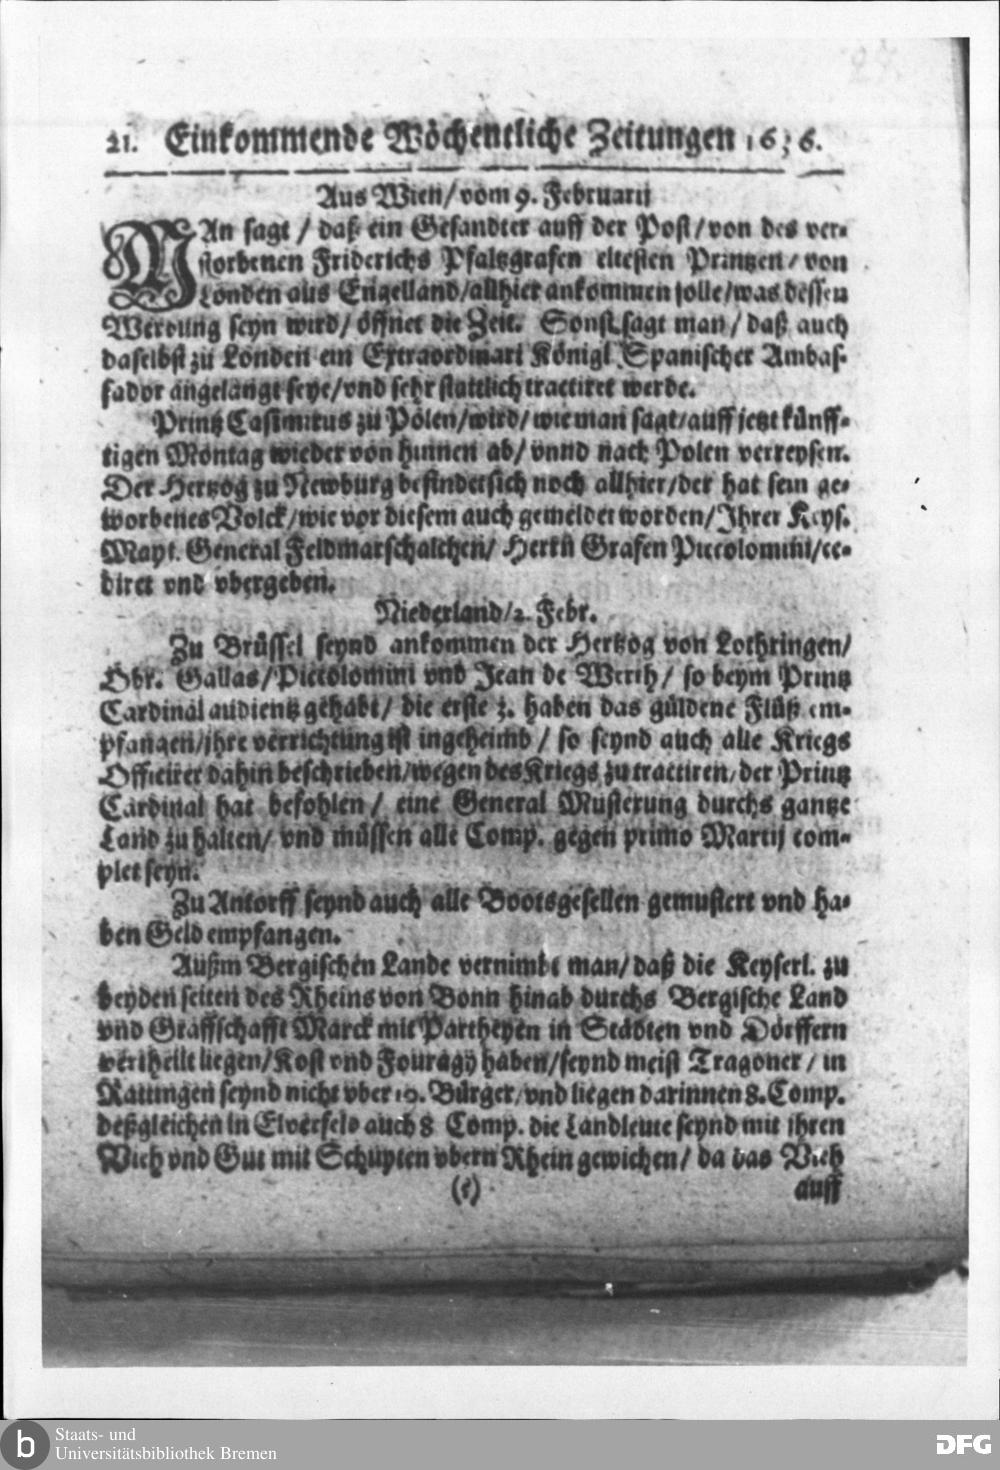 21. Einkommende Wöchentliche Zeitungen 1636.
Aus Wien/ vom 9. Februarii
MAn sagt / daß ein Gesandter auff der Post/ von des ver-
storbenen Friderichs Pfaltzgrafen eltesten Printzen/ von
Londen aus Engelland/ allhier ankommen solle/ was dessen
Werbung seyn wird/ öffnet die Zeit. Sonst sagt man/ daß auch
daselbst zu Londen ein Extraordinari Königl. Spanischer Ambas-
sador angelangt seye/ vnd sehr stattlich tractiret werde.
Printz Casimirus zu Polen/ wird/ wie man sagt/ auff jetzt künff-
tigen Montag wieder von hinnen ab/ vnnd nach Polen verreysen.
Der Hertzog zu Newburg befindet sich noch allhier/ der hat sein ge-
worbenes Volck/ wie vor diesem auch gemeldet worden/ Ihrer Keys.
Mayt. General Feldmarschalchen/ Herrn Grafen Piccolomini/ ce-
diret vnd vbergeben.
Niederland/ 2. Febr.
Zu Brüssel seynd ankommen der Hertzog von Lothringen/
Obr. Gallas/ Piccolomini vnd Jean de Werth/ so beym Printz
Cardinal audientz gehabt/ die erste 3. haben das güldene Flüß em-
pfangen/ ihre verrichtung ist ingeheimb/ so seynd auch alle Kriegs
Officirer dahin beschrieben/ wegen des Kriegs zu tractiren/ der Printz
Cardinal hat befohlen/ eine General Musterung durchs gantze
Land zu halten/ vnd müssen alle Comp. gegen primo Martij com-
plet seyn.
Zu Antorff seynd auch alle Bootsgesellen gemustert vnd ha-
ben Geld empfangen.
Außm Bergischen Lande vernimbt man/ daß die Keyserl. zu
beyden seiten des Rheins von Bonn hinab durchs Bergische Land
vnd Graffschafft Marck mit Partheyen in Städten vnd Dörffern
vertheilt liegen/ Kost vnd Fouragy haben/ seynd meist Tragoner / in
Rattingen seynd nicht vber 19. Bürger/ vnd liegen darinnen 8. Comp.
deßgleichen in Elverfeld auch 8 Comp. die Landleute seynd mit ihren
Vieh vnd Gut mit Schuyten vbern Rhein gewichen/ da das Vieh
auff
b Staats- und
Universitätsbibliothek Bremen
DFG